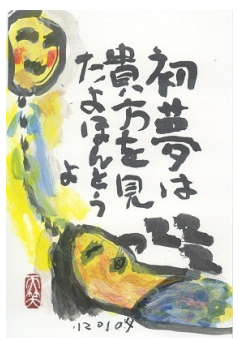 初夢は
貴方を見
たよほんとう
よ
.12 01 04